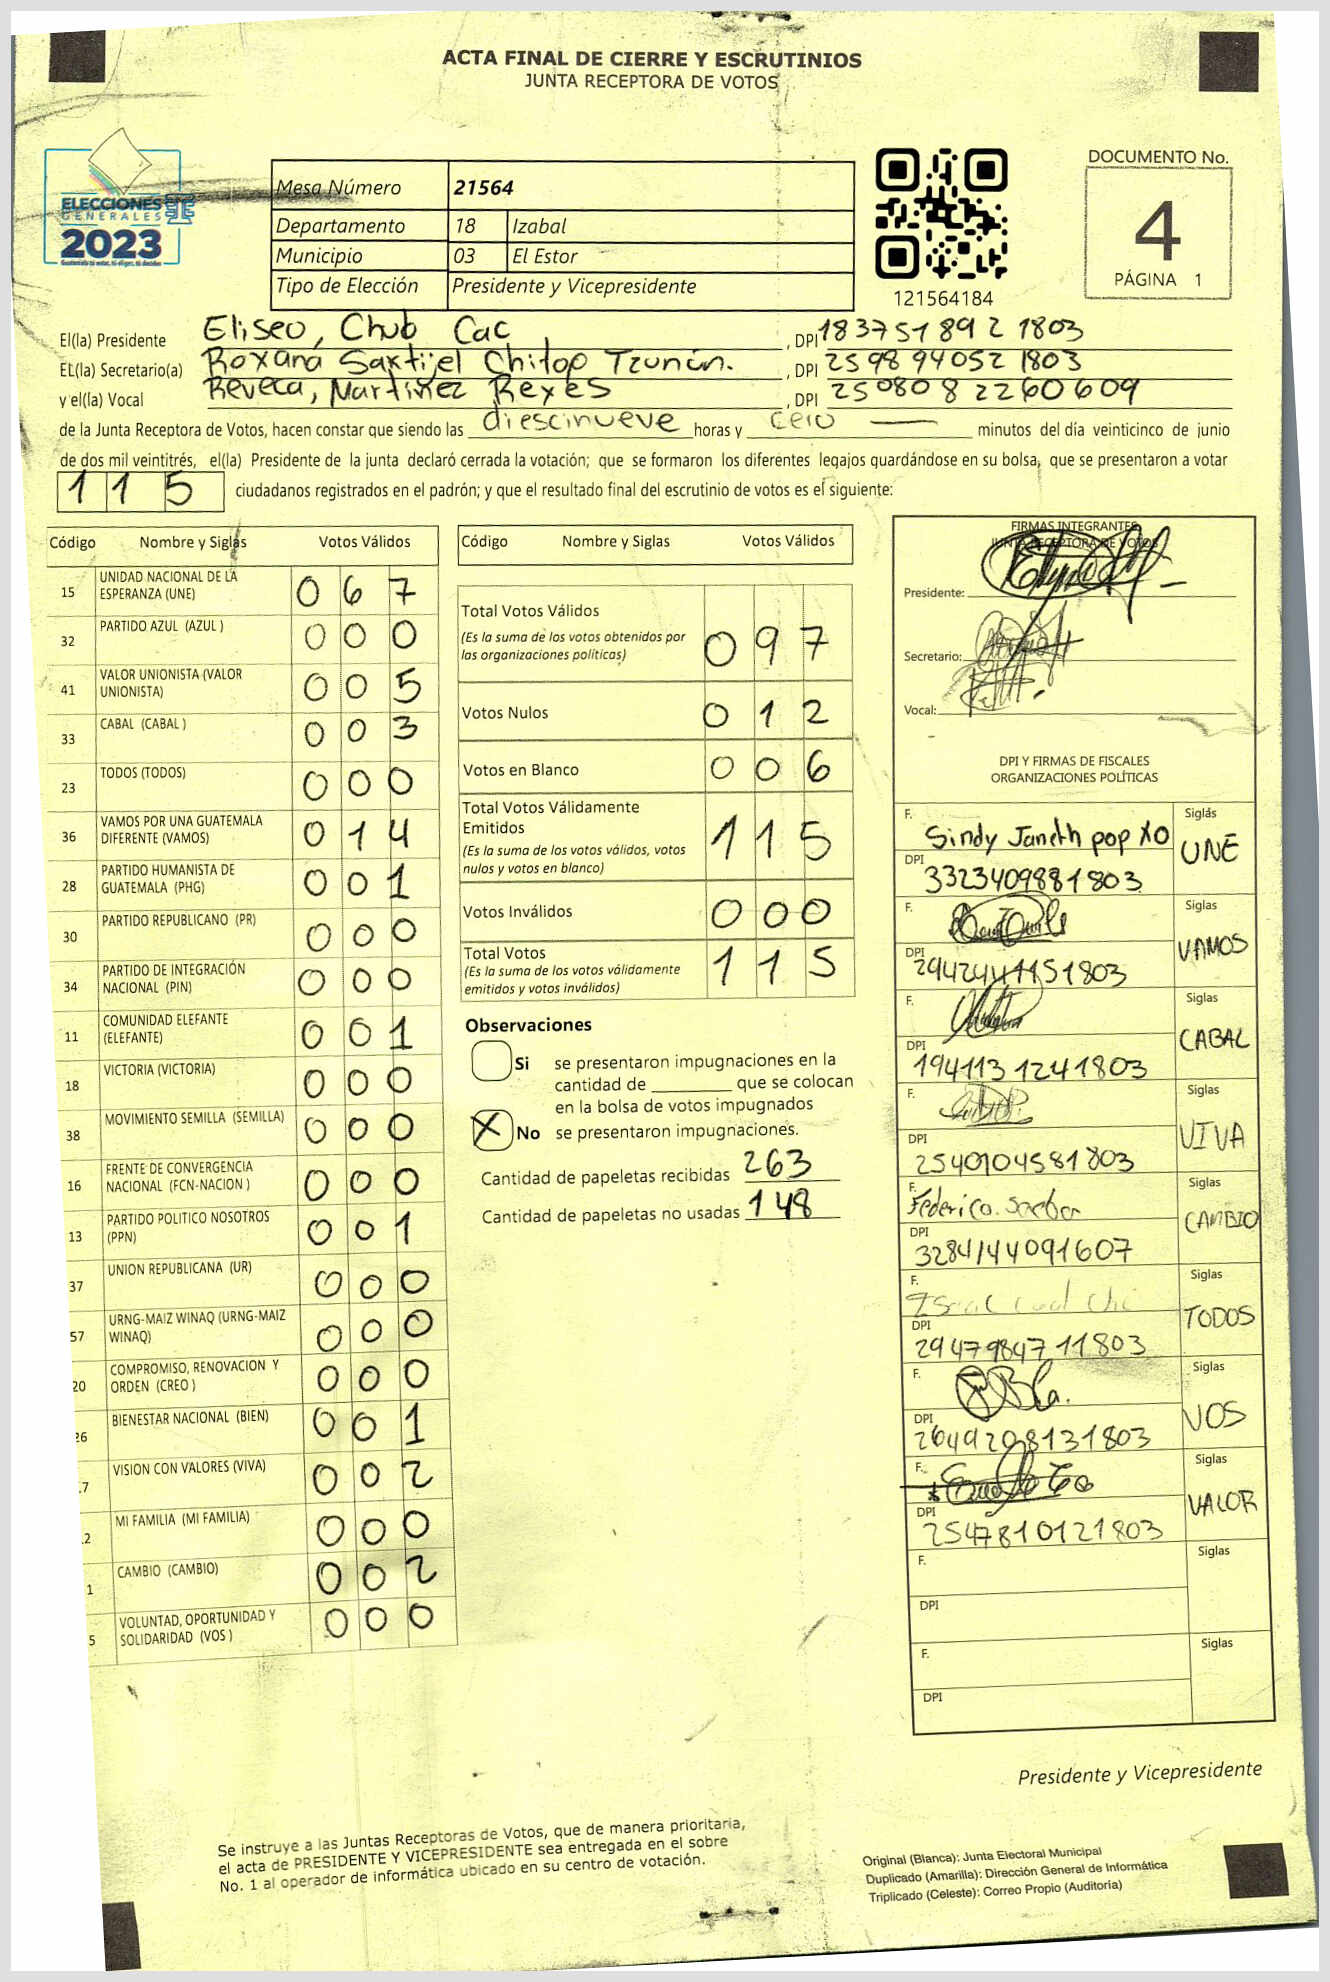 ACTA FINAL DE CIERRE Y ESCRUTINIOS
JUNTA RECEPTORA DE VOTOS
ELECCIONES
GENERALES
2023
Guatemala tú votas, tú eliges, tú decides
Mesa Número 21564
Departamento 18 Izabal
Municipio 03 El Estor
Tipo de Elección Presidente y Vicepresidente
121564184
DOCUMENTO No.
4
PÁGINA 1
El(la) Presidente Eliseo, Chub Cac , DPI 183751892 1803
EL(la) Secretario(a) Roxana Saxtijel Chitop Tzunún. , DPI 2598 94052 1803
y el(la) Vocal Reveca, Martinez Reyes , DPI 250808 2260609
de la Junta Receptora de Votos, hacen constar que siendo las diescinueve horas y cero minutos del día veinticinco de junio
de dos mil veintitrés, el(la) Presidente de la junta declaró cerrada la votación; que se formaron los diferentes legajos guardándose en su bolsa, que se presentaron a votar
115 ciudadanos registrados en el padrón; y que el resultado final del escrutinio de votos es el siguiente:
Código Nombre y Siglas Votos Válidos
15 UNIDAD NACIONAL DE LA ESPERANZA (UNE) 067
32 PARTIDO AZUL (AZUL ) 000
41 VALOR UNIONISTA (VALOR UNIONISTA) 005
33 CABAL (CABAL ) 003
23 TODOS (TODOS) 000
36 VAMOS POR UNA GUATEMALA DIFERENTE (VAMOS) 014
28 PARTIDO HUMANISTA DE GUATEMALA (PHG) 001
30 PARTIDO REPUBLICANO (PR) 000
34 PARTIDO DE INTEGRACIÓN NACIONAL (PIN) 000
11 COMUNIDAD ELEFANTE (ELEFANTE) 001
18 VICTORIA (VICTORIA) 000
38 MOVIMIENTO SEMILLA (SEMILLA) 000
16 FRENTE DE CONVERGENCIA NACIONAL (FCN-NACION ) 000
13 PARTIDO POLITICO NOSOTROS (PPN) 001
37 UNION REPUBLICANA (UR) 000
57 URNG-MAIZ WINAQ (URNG-MAIZ WINAQ) 000
20 COMPROMISO, RENOVACION Y ORDEN (CREO ) 000
26 BIENESTAR NACIONAL (BIEN) 001
7 VISION CON VALORES (VIVA) 002
2 MI FAMILIA (MI FAMILIA) 000
1 CAMBIO (CAMBIO) 002
5 VOLUNTAD, OPORTUNIDAD Y SOLIDARIDAD (VOS ) 000
Código Nombre y Siglas Votos Válidos
Total Votos Válidos 097
(Es la suma de los votos obtenidos por
las organizaciones políticas)
Votos Nulos 012
Votos en Blanco 006
Total Votos Válidamente
Emitidos 115
(Es la suma de los votos válidos, votos
nulos y votos en blanco)
Votos Inválidos 000
Total Votos 115
(Es la suma de los votos válidamente
emitidos y votos inválidos)
Observaciones
Si se presentaron impugnaciones en la
cantidad de ________ que se colocan
en la bolsa de votos impugnados
X No se presentaron impugnaciones.
Cantidad de papeletas recibidas 263
Cantidad de papeletas no usadas 148
FIRMAS INTEGRANTES
JUNTA RECEPTORA DE VOTOS
Presidente:
Secretario:
Vocal:
DPI Y FIRMAS DE FISCALES
ORGANIZACIONES POLÍTICAS
F. Sindy Janeth pop xo Siglas UNE
DPI 3323409881803
F. Siglas VAMOS
DPI 2942441151803
F. Siglas CABAL
DPI 194113 1241803
F. Siglas VIVA
DPI 2540904581803
F. Federico. Siglas CAMBIO
DPI 3284144091607
F. Siglas TODOS
DPI 2947984711803
F. Siglas VOS
DPI 2649298131803
F. Siglas VALOR
DPI 2547810121803
F. Siglas
DPI
F. Siglas
DPI
Presidente y Vicepresidente
Se instruye a las Juntas Receptoras de Votos, que de manera prioritaria,
el acta de PRESIDENTE Y VICEPRESIDENTE sea entregada en el sobre
No. 1 al operador de informática ubicado en su centro de votación.
Original (Blanca): Junta Electoral Municipal
Duplicado (Amarilla): Dirección General de Informática
Triplicado (Celeste): Correo Propio (Auditoría)